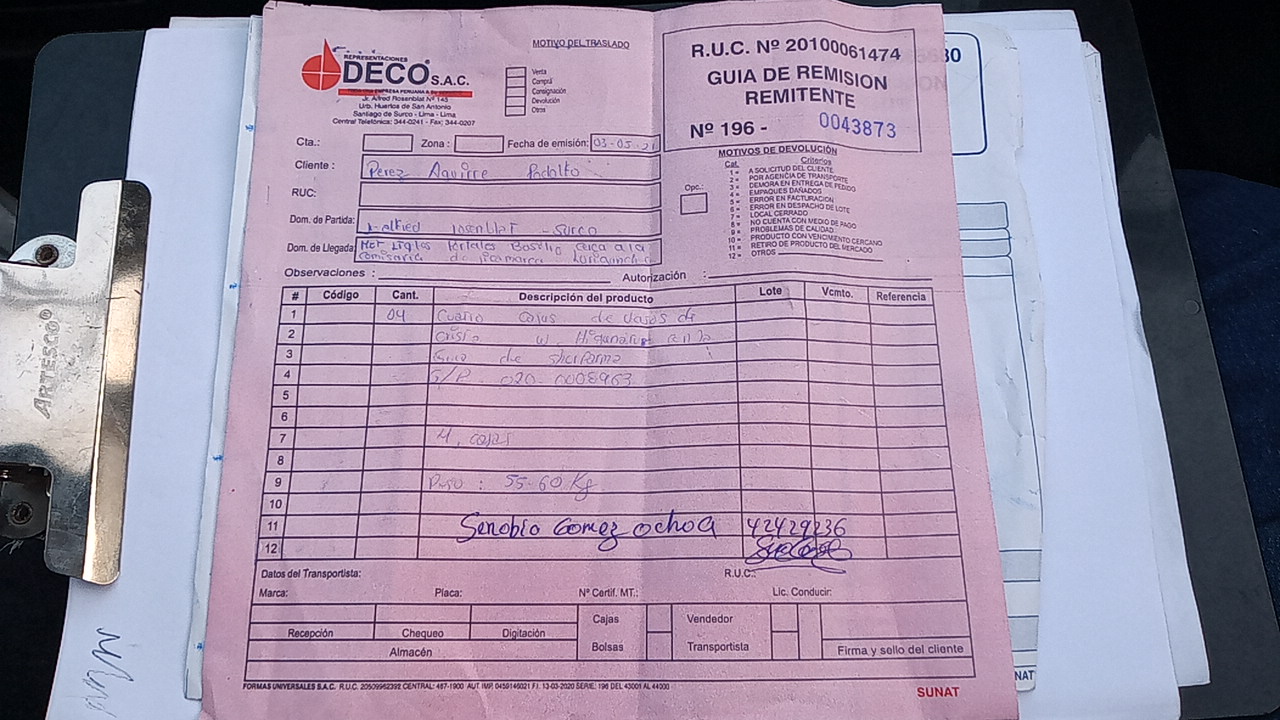 MOTIVO DEL TRASLADO
REPRESENTACIONES
DECO S.A.C.
Jr. Alfred Rosenblat Nº 145
Urb. Huertos de San Antonio
Santiago de Surco - Lima - Lima
Central Telefónica: 344-0241 - Fax: 344-0207
Venta
Compra
Consignación
Devolución
Otros
R.U.C. Nº 20100061474
GUIA DE REMISION
REMITENTE
Nº 196 - 0043873
Cta.: Zona : Fecha de emisión: 03-05-21
Cliente : Perez Aguirre
RUC:
Dom. de Partida: Surco
Dom. de Llegada: cerca a la
comisaria de
MOTIVOS DE DEVOLUCIÓN
Cat. Criterios
1 = A SOLICITUD DEL CLIENTE
2 = POR AGENCIA DE TRANSPORTE
3 = DEMORA EN ENTREGA DE PEDIDO
4 = EMPAQUES DAÑADOS
5 = ERROR EN FACTURACION
6 = ERROR EN DESPACHO DE LOTE
7 = LOCAL CERRADO
8 = NO CUENTA CON MEDIO DE PAGO
9 = PROBLEMAS DE CALIDAD
10 = PRODUCTO CON VENCIMIENTO CERCANO
11 = RETIRO DE PRODUCTO DEL MERCADO
12 = OTROS
Opc.:
Observaciones : Autorización :
# Código Cant. Descripción del producto Lote Vcmto. Referencia
1 04 Cuatro cajas de vasos de
2
3 Guia de
4 G/R. 020-0008963
5
6
7 4 cajas
8
9 Peso : 55.60 Kg
10
11 Senobio Gomez Ochoa 42429236
12
Datos del Transportista: R.U.C.:
Marca: Placa: Nº Certif. MT.: Lic. Conducir:
Recepción Chequeo Digitación
Almacén
Cajas
Bolsas
Vendedor
Transportista
Firma y sello del cliente
FORMAS UNIVERSALES S.A.C. R.U.C. 20509962393 CENTRAL: 467-1900 AUT. IMP. 0459146021 F.I. 13-03-2020 SERIE: 196 DEL 43001 AL 44000
SUNAT
ARTESCO®
NAT